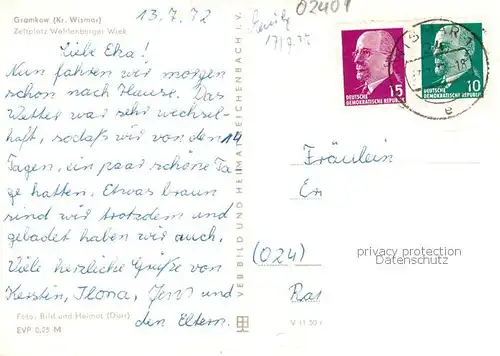 Gramkow (Kr. Wismar)
Zeltplatz Wohlenberger Wiek
13.7.72
Liebe Eka!
Nun fahren wir morgen
schon nach Hause. Das
Wetter war sehr wechsel-
haft, sodaß wir von den 14
Tagen, ein paar schöne Ta
ge hatten. Etwas braun
sind wir trotzdem und
gebadet haben wir auch.
Viele herzliche Grüße von
Kersten, Ilona, Jens und
den Eltern.
Foto: Bild und Heimat (Darr)
EVP 0,25 M
VEB BILD UND HEIMAT REICHENBACH i. V.
02401
17/7.72
15
DEUTSCHE
DEMOKRATISCHE REPUBLIK
10
DEUTSCHE
DEMOKRATISCHE REPUBLIK
Fräulein
(024)
privacy protection
VeryVintage.com